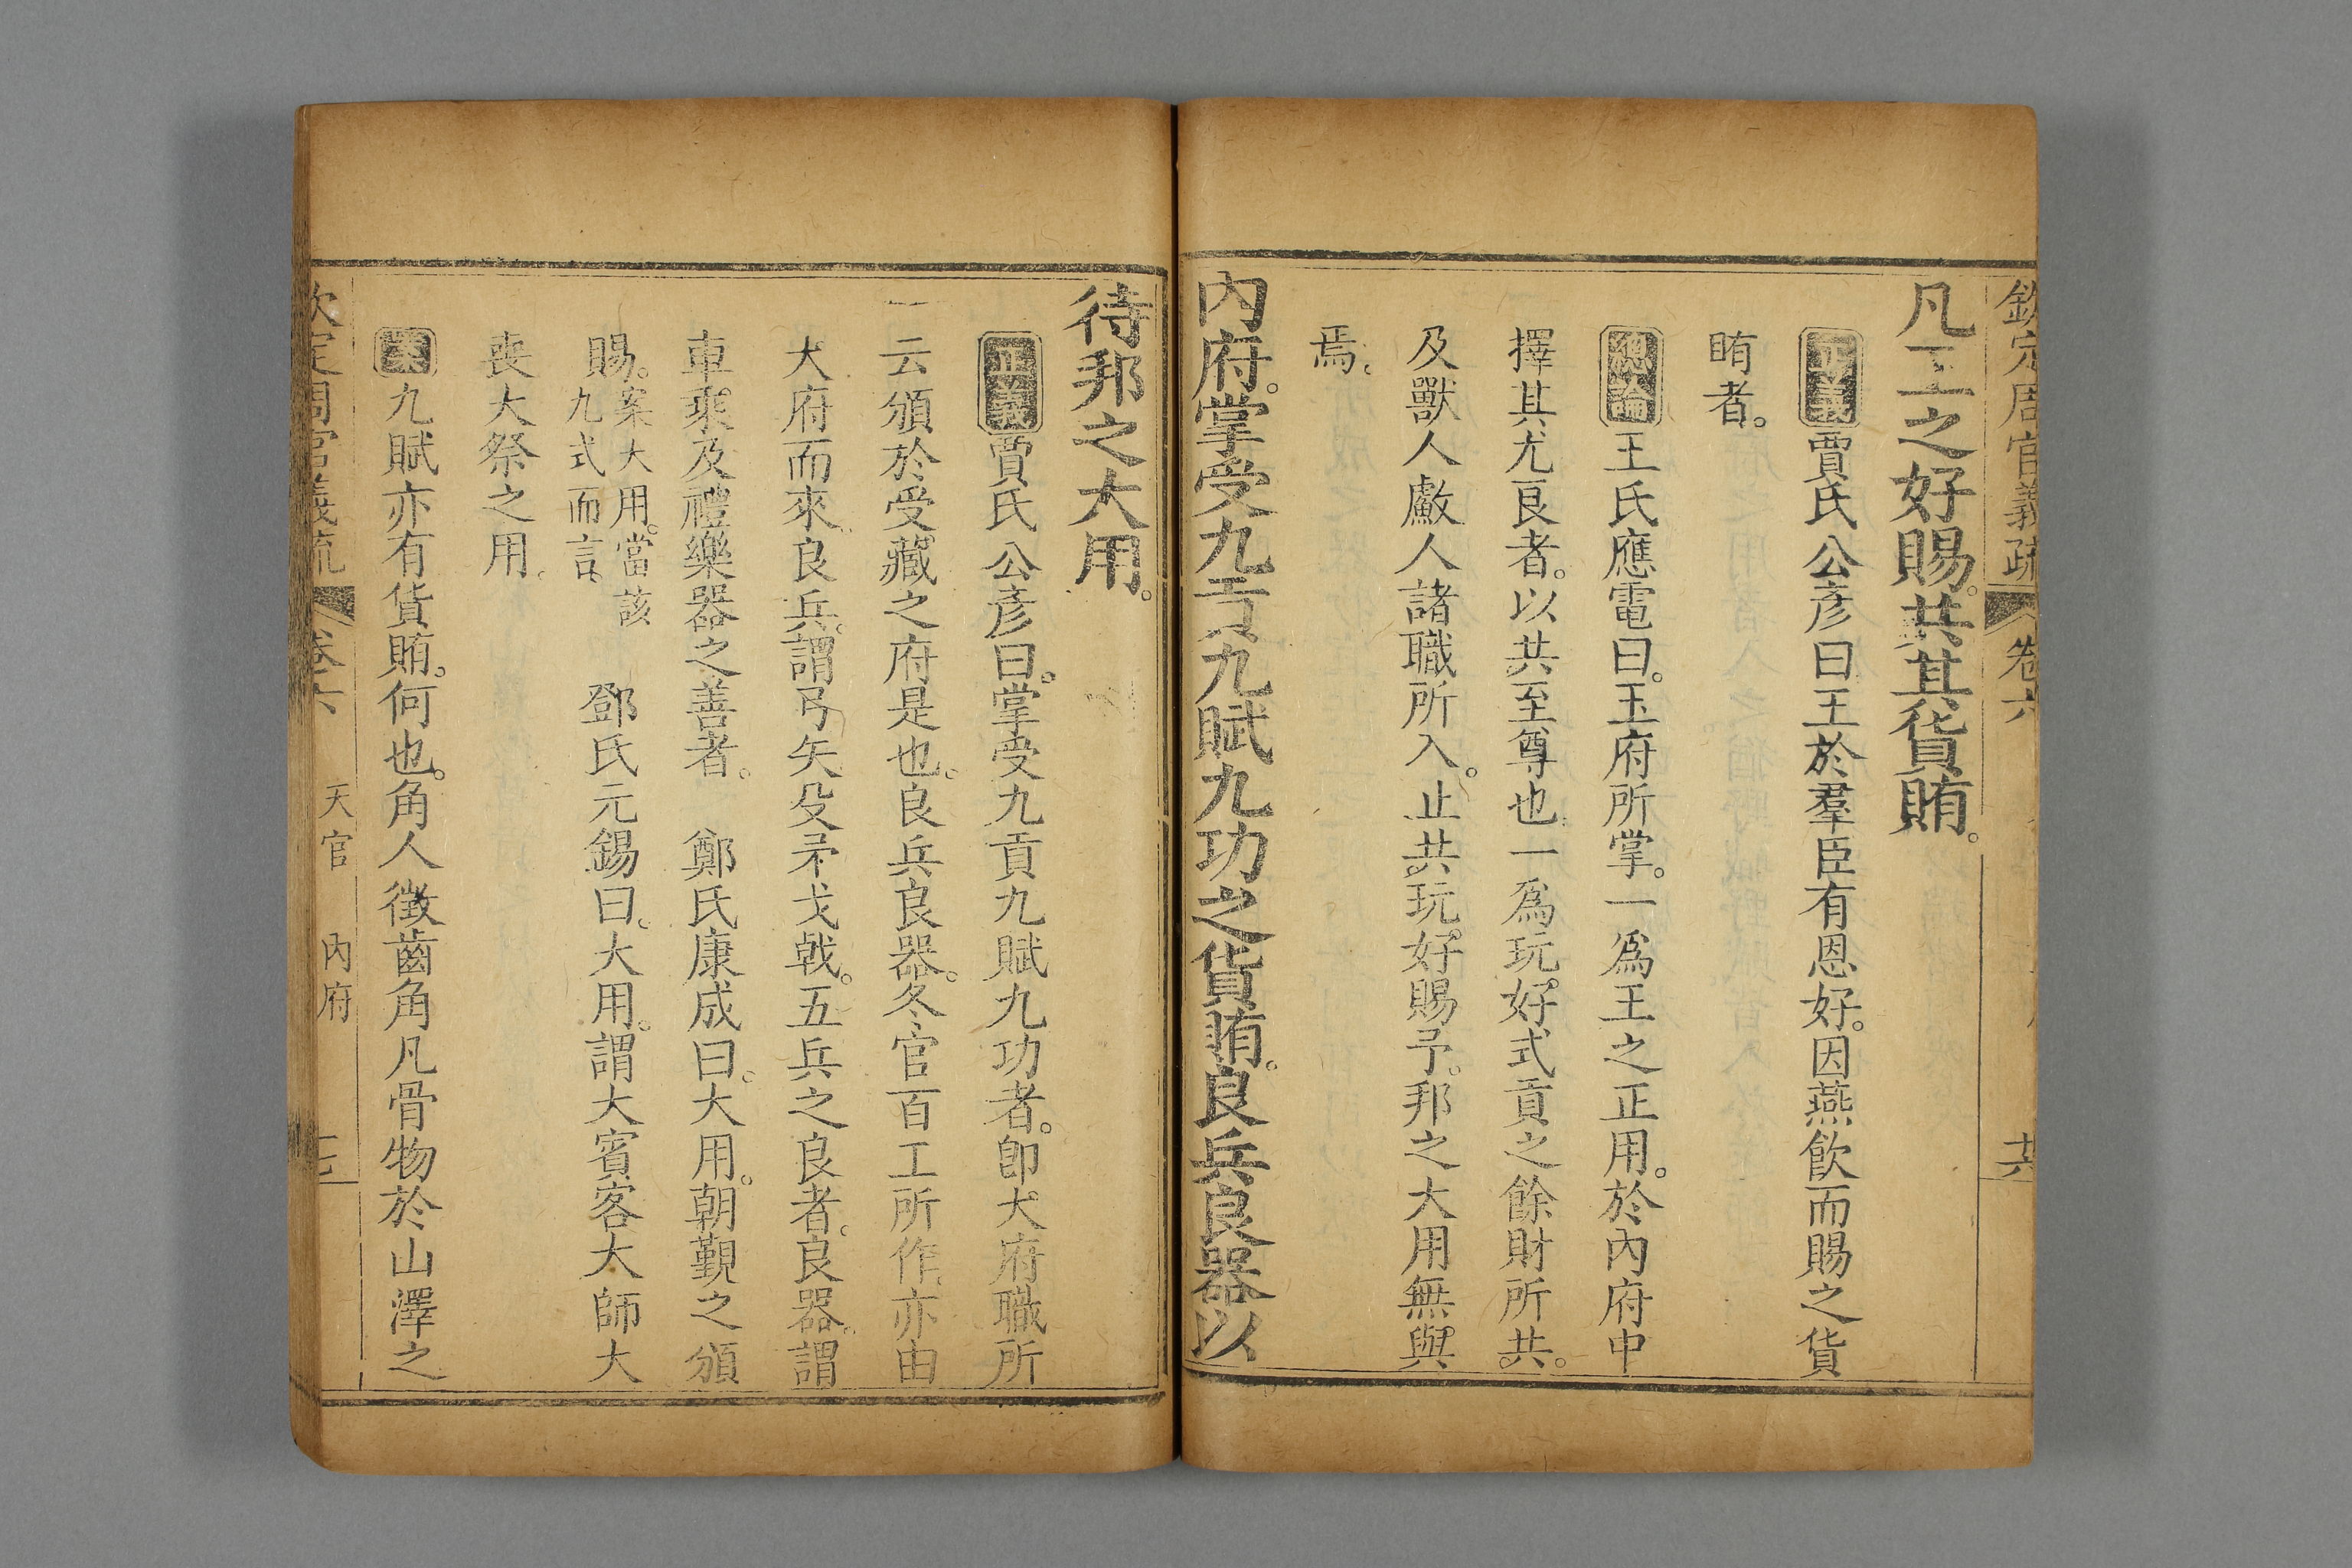 欽定周官義疏 卷六
凡王之好賜。共其貨賄。
正義賈氏公彥曰王於羣臣有恩好。因燕飮而賜之貨
賄者。
總論王氏應電曰。玉府所掌。一爲王之正用。於內府中
擇其尤良者。以共至尊也一爲玩好。式貢之餘財所共。
及獸人䱷人諸職所入。止共玩好賜予。邦之大用無與
焉。
內府。掌受九貢九賦九功之貨賄。良兵良器以
待邦之大用。
正義賈氏公彥曰。掌受九貢九賦九功者。卽大府職所
云頒於受藏之府是也。良兵良器。冬官百工所作。亦由
大府而來。良兵。謂弓矢殳矛戈戟。五兵之良者。良器。謂
車乘及禮樂器之善者。 鄭氏康成曰。大用。朝覲之頒
賜。案大用。當該九式而言。 鄧氏元錫曰。大用。謂大賓客大師大
喪大祭之用。
案九賦亦有貨賄。何也。角人徵齒角凡骨物於山澤之
欽定周官義疏 卷六 天官 內府